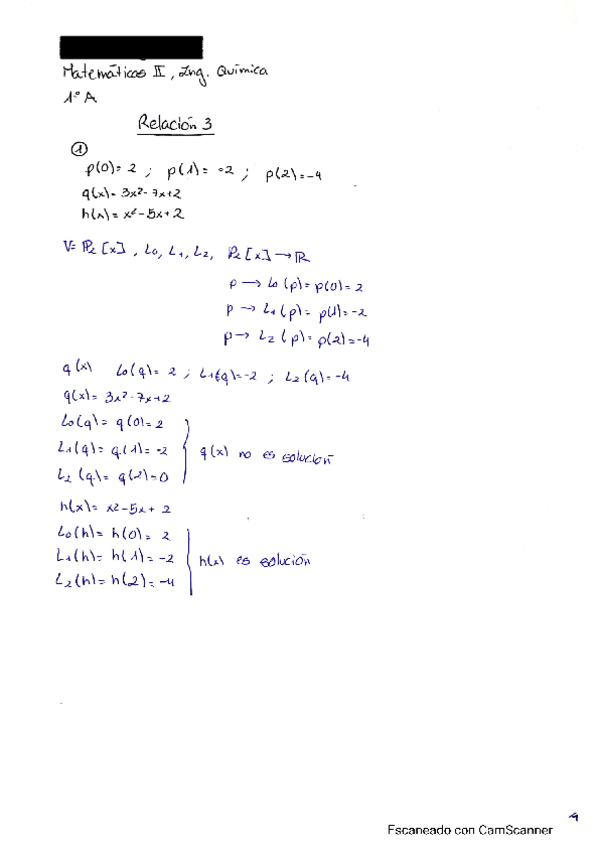 Matemáticas II, Ing. Química
1º A
Relación 3
①
p(0)= 2 ; p(1)= -2 ; p(2)=-4
q(x)= 3x²-7x+2
h(x)= x²-5x+2
V= P₂[x] , L₀, L₁, L₂, P₂[x] → R
p → L₀(p)= p(0)= 2
p → L₁(p)= p(1)= -2
p → L₂(p)= p(2)=-4
q(x) L₀(q)= 2 ; L₁(q)=-2 ; L₂(q)=-4
q(x)= 3x²-7x+2
L₀(q)= q(0)= 2
L₁(q)= q(1)= -2 q(x) no es solución
L₂(q)= q(2)=0
h(x)= x²-5x+2
L₀(h)= h(0)= 2
L₁(h)= h(1)= -2 h(x) es solución
L₂(h)= h(2)= -4
1
Escaneado con CamScanner